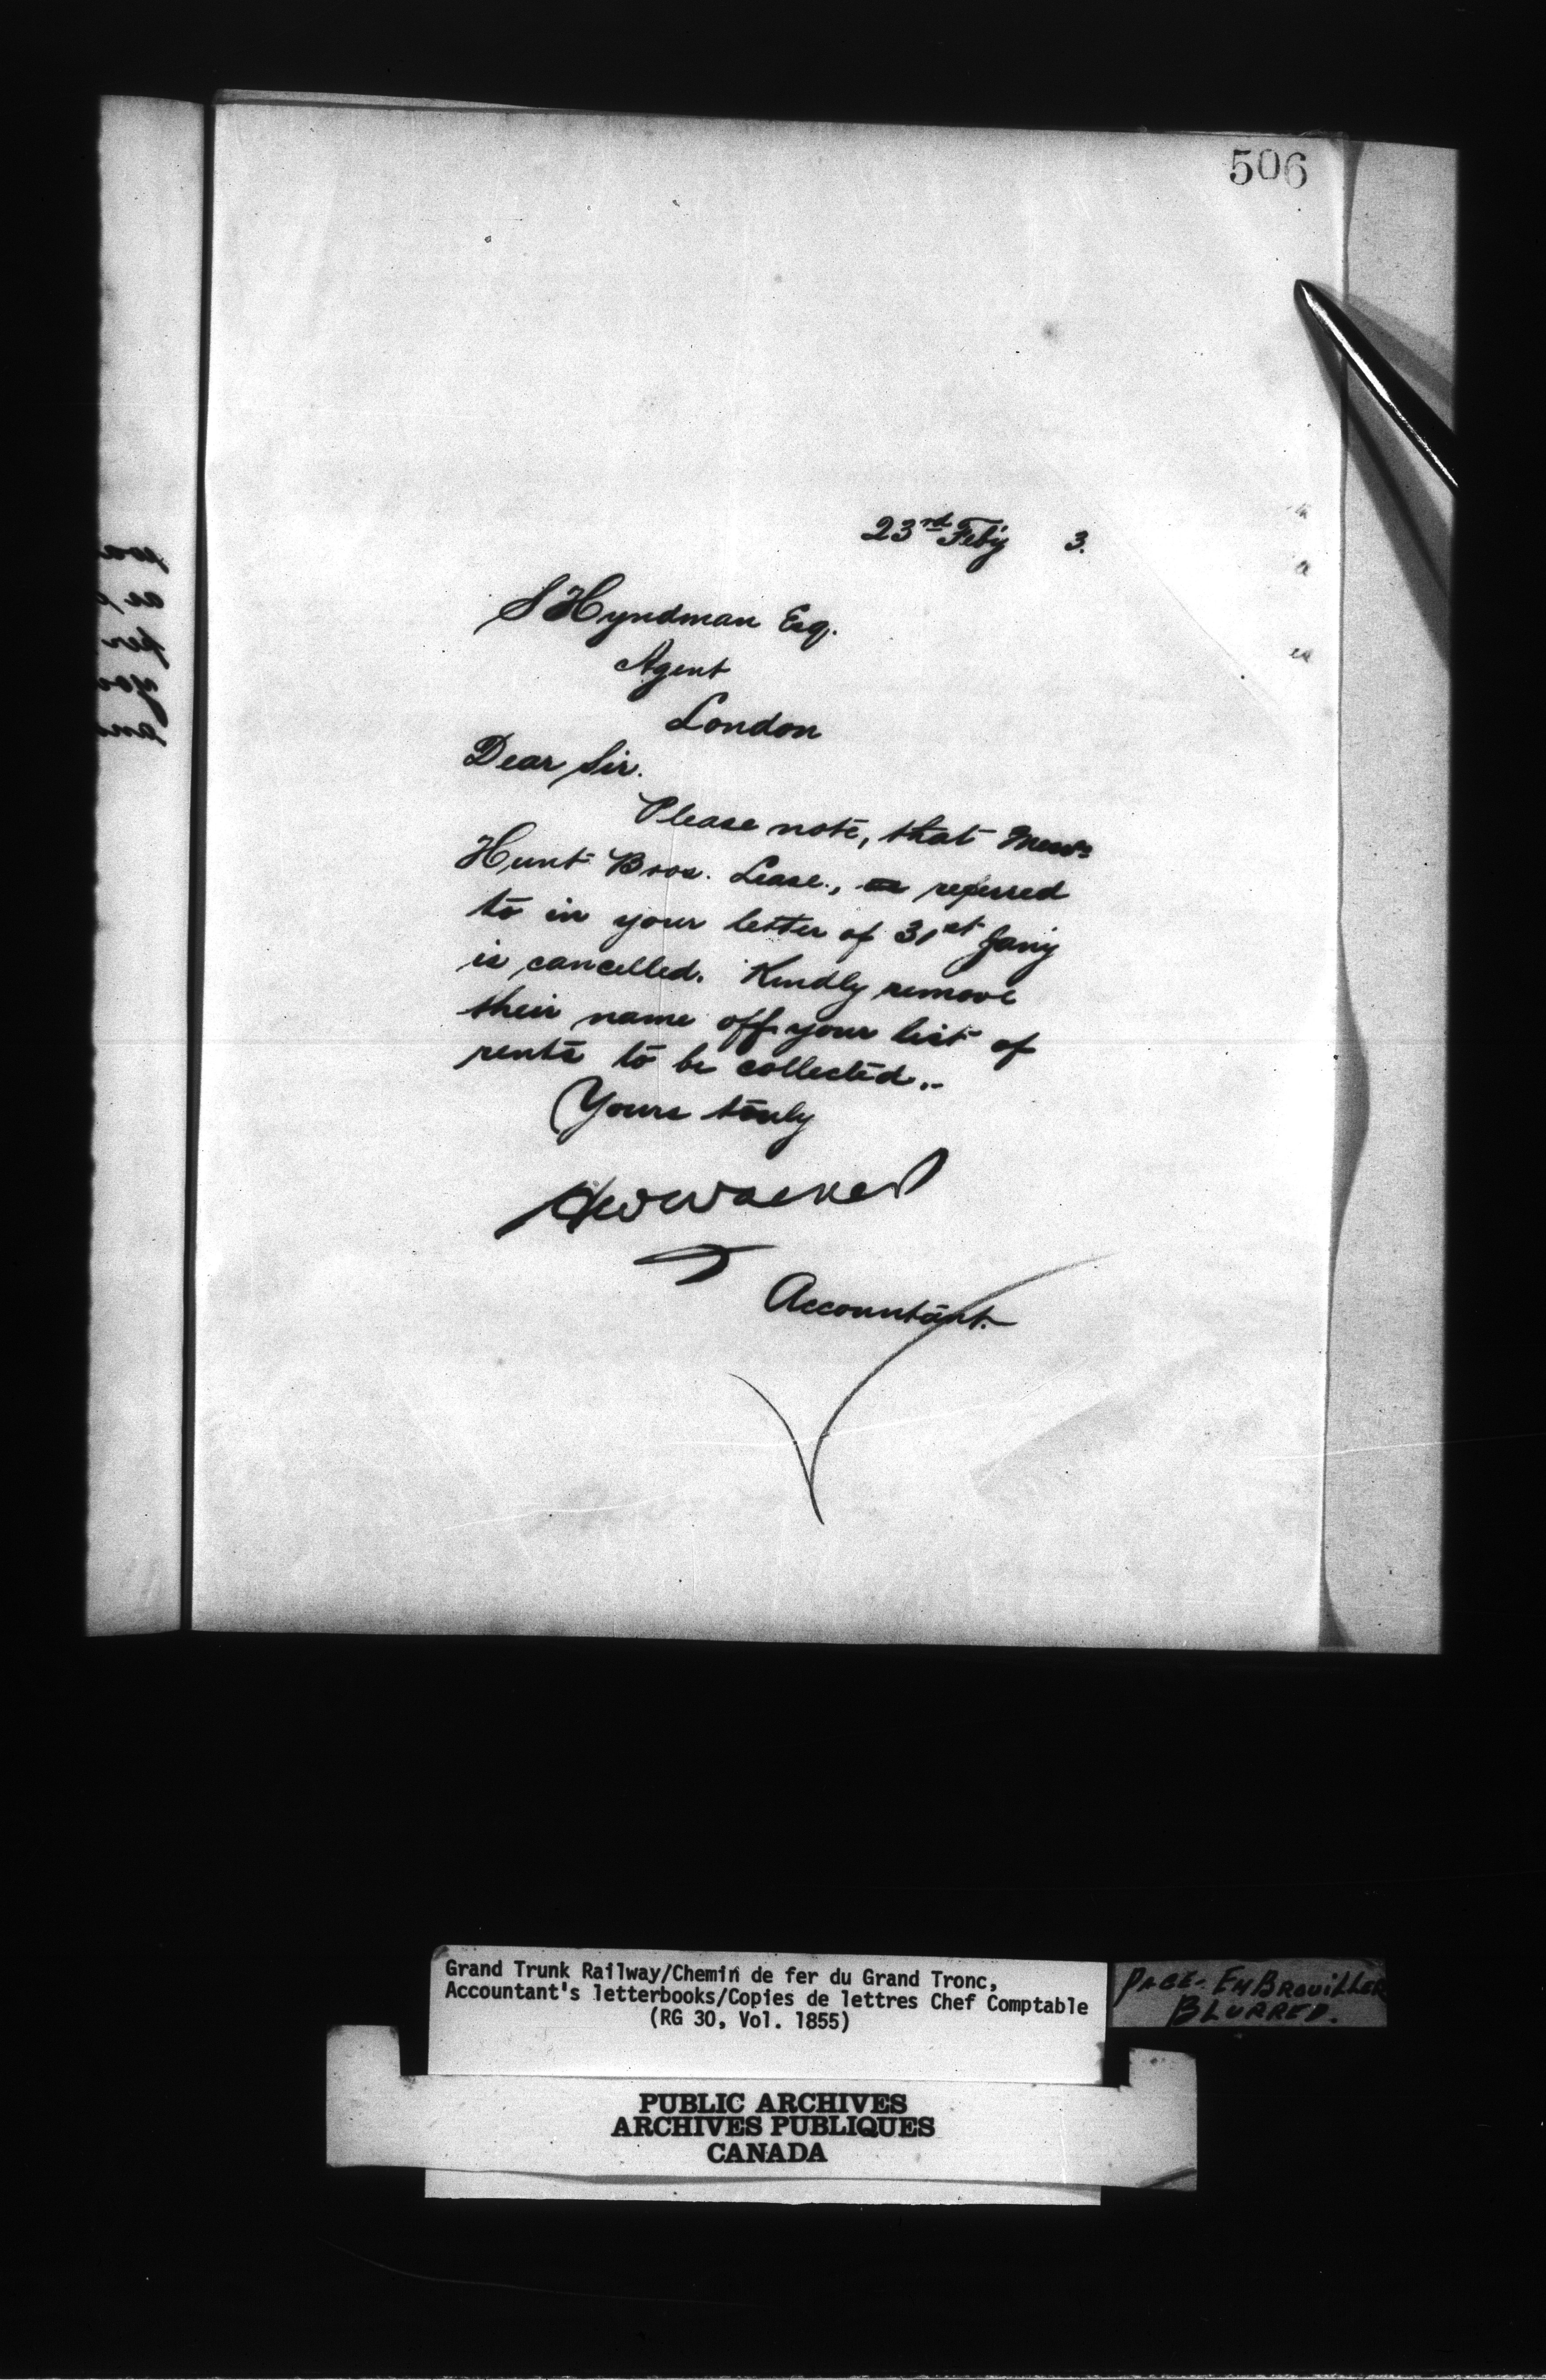 506
23rd Feb'y 3.
S Hyndman Esq.
Agent
London
Dear Sir.
Please note, that Messrs
Hunt Bros. Lease., as referred
to in your letter of 31st Jany
is cancelled. Kindly remove
their name off your list of
rents to be collected..
Yours truly
HWWalker
Accountant.
Grand Trunk Railway/Chemin de fer du Grand Tronc,
Accountant's letterbooks/Copies de lettres Chef Comptable
(RG 30, Vol. 1855)
PAGE- EMBROUILLER
BLURRED.
PUBLIC ARCHIVES
ARCHIVES PUBLIQUES
CANADA